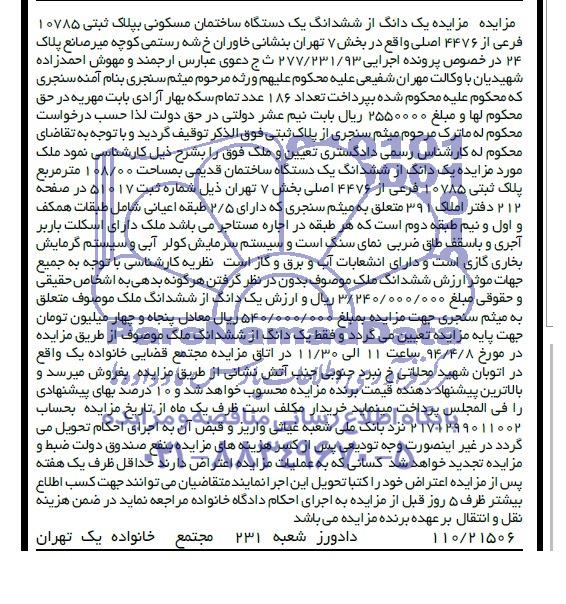 مزایده مزایده یک دانگ از ششدانگ یک دستگاه ساختمان مسکونی بپلاک ثبتی ۱۰۷۸۵
فرعی از ۴۴۷۶ اصلی واقع در بخش ۷ تهران بنشانی خاوران خ شه رستمی کوچه میرصانع پلاک
۲۴ در خصوص پرونده اجرایی ۲۷۷/۲۳۱/۹۳ ث ج دعوی عبارس ارجمند و مهوش احمدزاده
شهیدیان با وکالت مهران شفیعی علیه محکوم علیهم ورثه مرحوم میثم سنجری بنام آمنه سنجری
که محکوم علیه محکوم شده بپرداخت تعداد ۱۸۶ عدد تمام سکه بهار آزادی بابت مهریه در حق
محکوم لها و مبلغ ۲۵۵۰۰۰۰ ریال بابت نیم عشر دولتی در حق دولت لذا حسب درخواست
محکوم له ماترک مرحوم میثم سنجری از پلاک ثبتی فوق الذکر توقیف گردید و با توجه به تقاضای
محکوم له کارشناس رسمی دادگستری تعیین و ملک فوق را بشرح ذیل کارشناسی نمود ملک
مورد مزایده یک دانگ از ششدانگ یک دستگاه ساختمان قدیمی بمساحت ۱۰۸/۰۰ مترمربع
پلاک ثبتی ۱۰۷۸۵ فرعی از ۴۴۷۶ اصلی بخش ۷ تهران ذیل شماره ثبت ۵۱۰۱۷ در صفحه
۲۱۲ دفتر املاک ۳۹۱ متعلق به میثم سنجری که دارای ۲/۵ طبقه اعیانی شامل طبقات همکف
و اول و نیم طبقه دوم است که هر طبقه در اجاره مستاجر می باشد ملک دارای اسکلت باربر
آجری و باسقف طاق ضربی نمای سنگ است و سیستم سرمایش کولر آبی و سیستم گرمایش
بخاری گازی است و دارای انشعابات آب و برق و گاز است نظریه کارشناسی با توجه به جمیع
جهات موثر ارزش ششدانگ ملک موصوف بدون در نظر گرفتن هرگونه بدهی به اشخاص حقیقی
و حقوقی مبلغ ۳/۲۴۰/۰۰۰/۰۰۰ ریال و ارزش یک دانگ از ششدانگ ملک موصوف متعلق
به میثم سنجری جهت مزایده بمبلغ ۵۴۰/۰۰۰/۰۰۰ ریال معادل پنجاه و چهار میلیون تومان
جهت پایه مزایده تعیین می گردد و فقط یک دانگ از ششدانگ ملک موصوف از طریق مزایده
در مورخ ۹۴/۴/۸ ساعت ۱۱ الی ۱۱/۳۰ در اتاق مزایده مجتمع قضایی خانواده یک واقع
در اتوبان شهید محلاتی خ نبرد جنوبی جنب آتش نشانی از طریق مزایده بفروش میرسد و
بالاترین پیشنهاد دهنده قیمت برنده مزایده محسوب خواهد شد و ۱۰ درصد بهای پیشنهادی
را فی المجلس پرداخت مینماید خریدار مکلف است ظرف یک ماه از تاریخ مزایده بحساب
۲۱۷۱۲۹۹۰۱۱۰۰۲ نزد بانک ملی شعبه غیاثی واریز و قبض آن به اجرای احکام تحویل می
گردد در غیر اینصورت وجه تودیعی پس از کسر هزینه های مزایده بنفع صندوق دولت ضبط و
مزایده تجدید خواهد شد کسانی که به عملیات مزایده اعتراض دارند حداقل ظرف یک هفته
پس از مزایده اعتراض خود را کتبا تحویل این اجرا نمایند متقاضیان می توانند جهت کسب اطلاع
بیشتر ظرف ۵ روز قبل از مزایده به اجرای احکام دادگاه خانواده مراجعه نماید در ضمن هزینه
نقل و انتقال بر عهده برنده مزایده می باشد
۱۱۰/۲۱۵۰۶ دادورز شعبه ۲۳۱ مجتمع خانواده یک تهران
ParsNamadData
۰۲۱-۸۸۳۴۹۶۷۰-۵